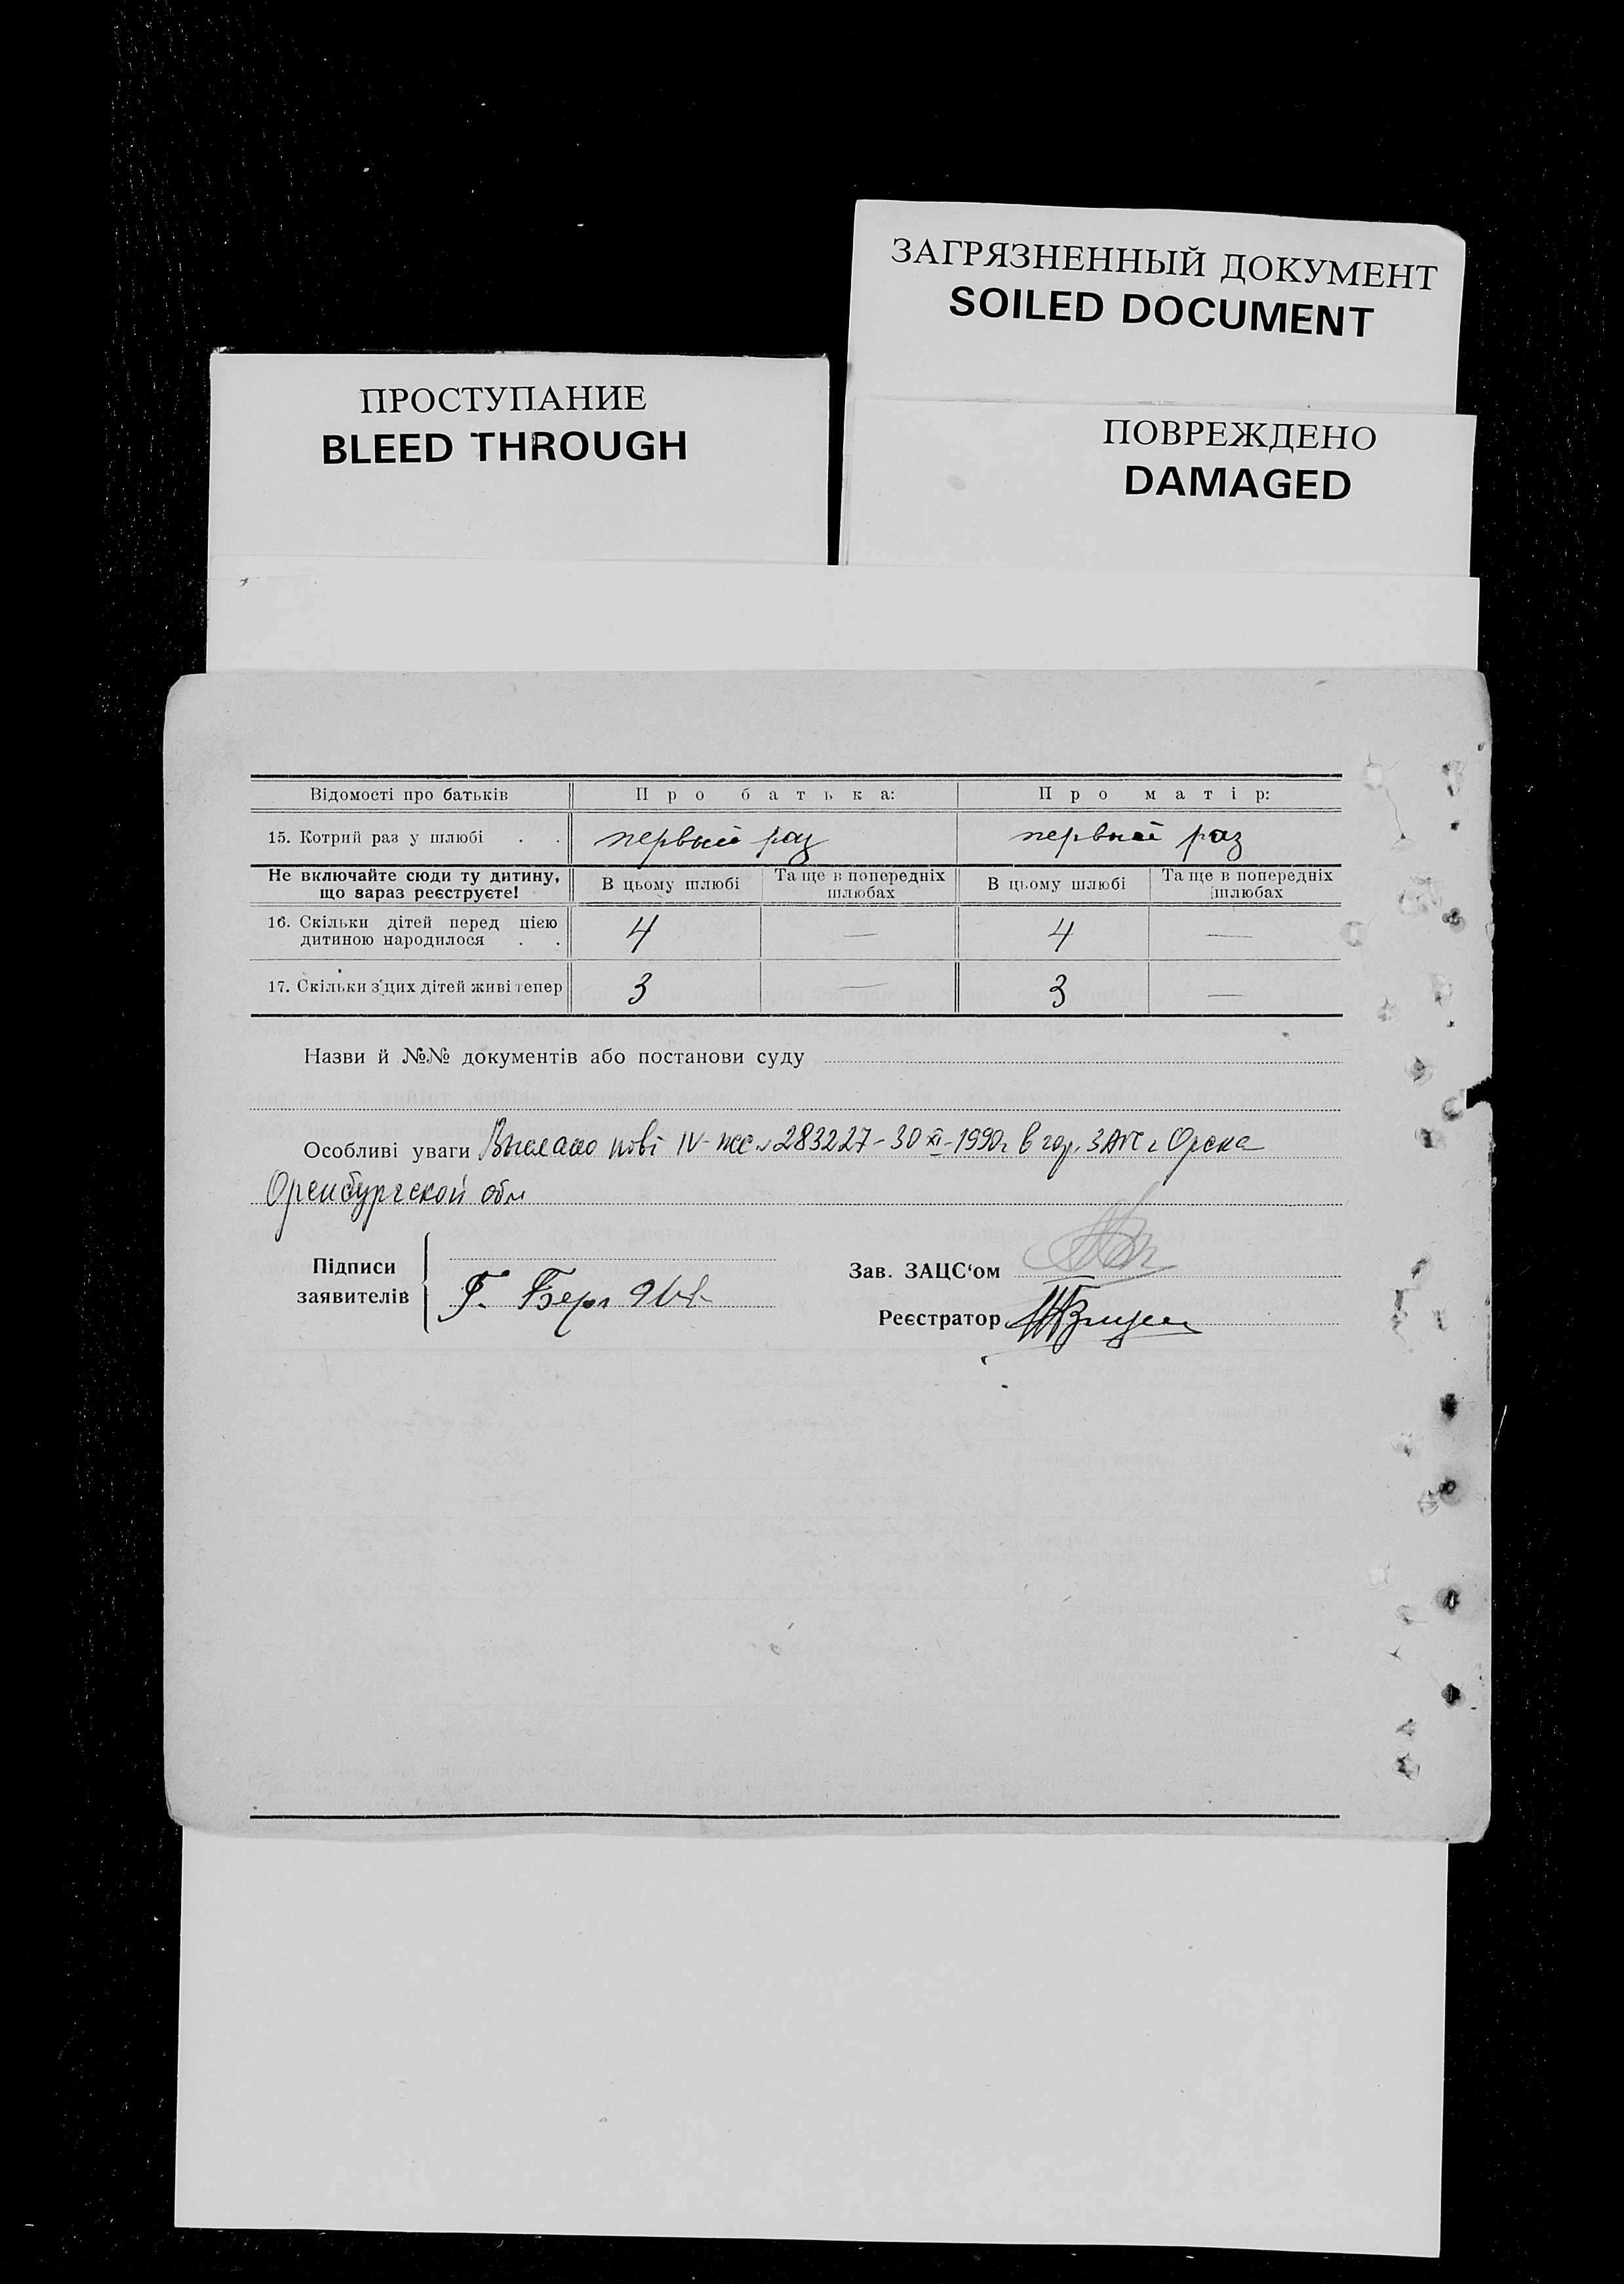 ЗАГРЯЗНЕННЫЙ ДОКУМЕНТ
SOILED DOCUMENT
ПРОСТУПАНИЕ
BLEED THROUGH
ПОВРЕЖДЕНО
DAMAGED
Відомості про батьків Про батька: Про матір:
15. Котрий раз у шлюбі . . первый раз первый раз
Не включайте сюди ту дитину, що зараз реєструєте! В цьому шлюбі Та ще в попередніх шлюбах В цьому шлюбі Та ще в попередніх шлюбах
16. Скільки дітей перед цією
дитиною народилося . . 4 — 4 —
17. Скільки з цих дітей живі тепер 3 — 3 —
Назви й №№ документів або постанови суду
Особливі уваги Выслано IV-ЖС 283227-30 XI-1990г в гор. ЗАГС г Орска
Оренбургской обл
Підписи
заявителів
Г.
Зав. ЗАЦС'ом
Реєстратор